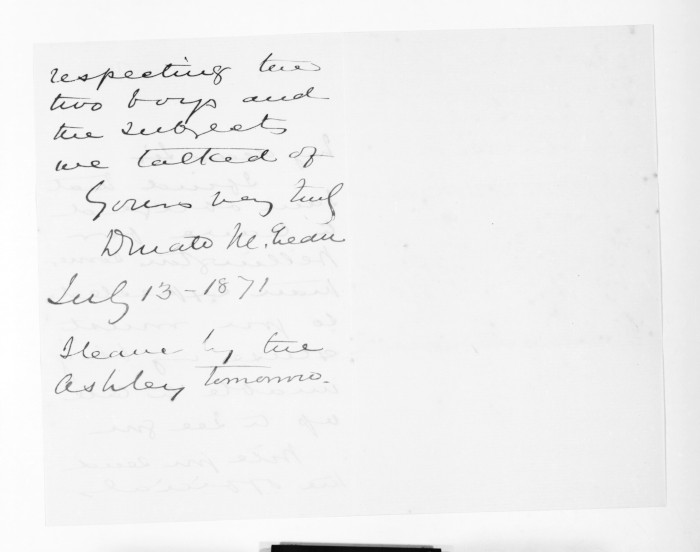 respecting the
two boys and
the subjects
we talked of
Yours very truly
Donald McLean
July 13 - 1871
I leave by the
Ashley tomorrow.